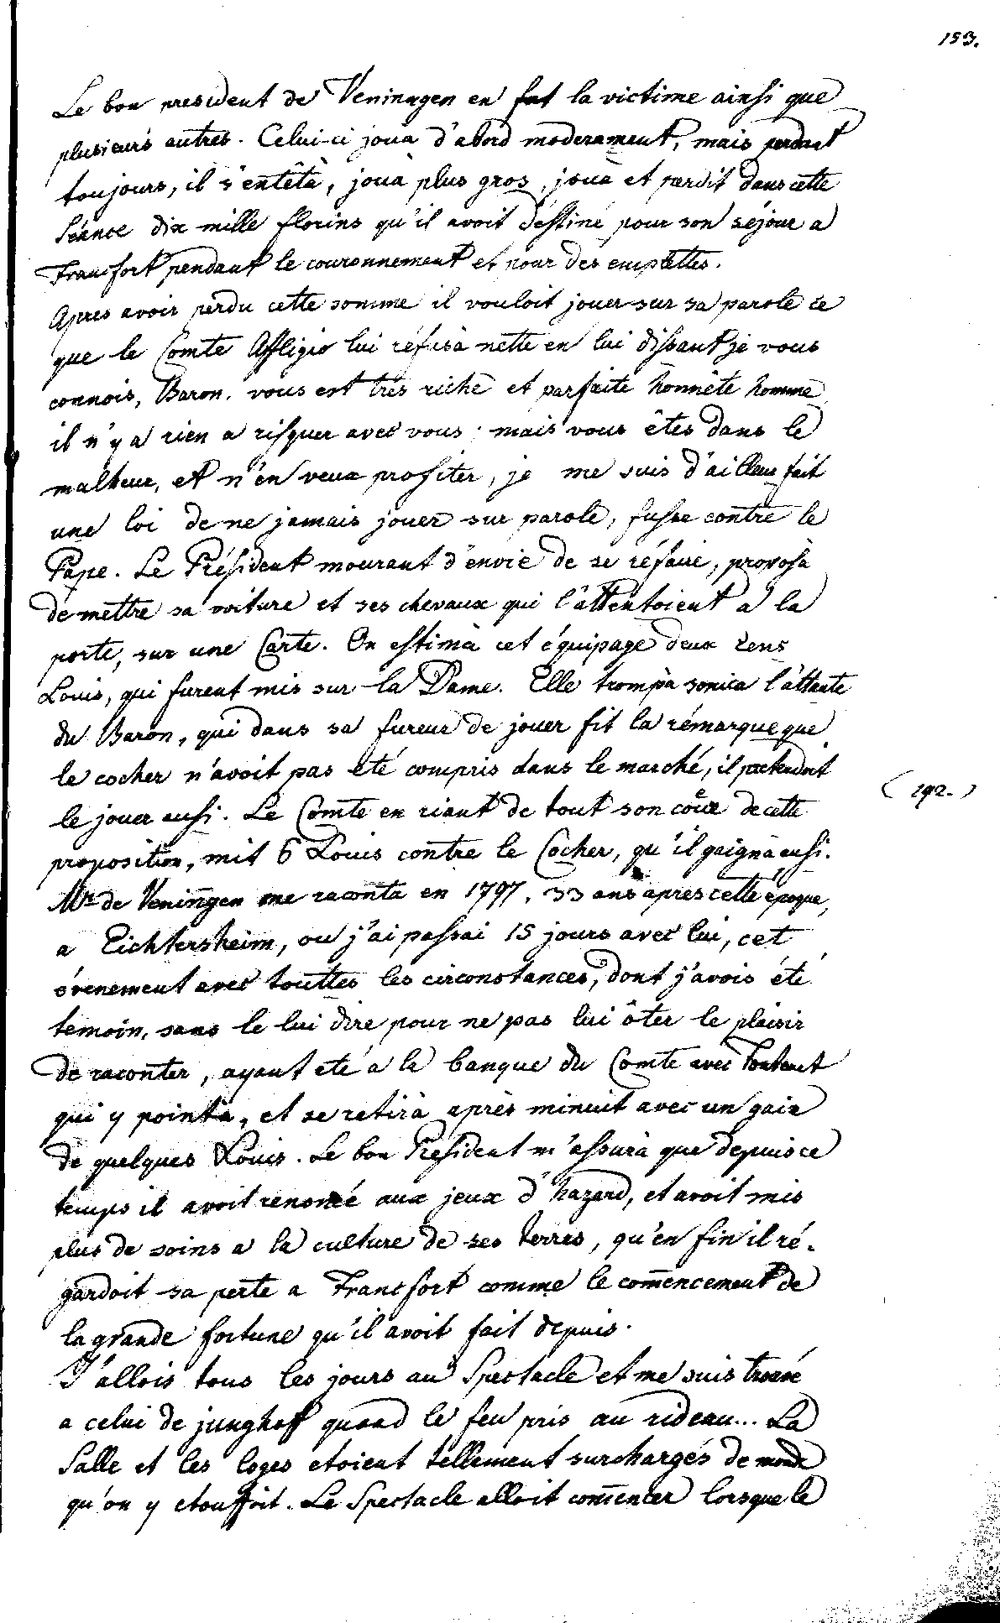 153.
Le bon president de Veningen en fut la victime ainsi que
plusieurs autres. Celui-ci joua d'abord moderament, mais perdant
toujours, il s'entêtà, jouà plus gros, jouà et perdit dans cette
séance dix mille florins qu'il avoit déstiné pour son séjour a
Francfort pendant le couronnement et pour des emplettes.
Apres avoir perdu cette somme il vouloit jouer sur sa parole ce
que le Comte Affligio lui réfusà nette en lui dissant je vous
connois, Baron, vous est tres riche et parfaite honnête homme
il n'y a rien a risquer avec vous; mais vous êtes dans le
malheur, et n'en veux profiter, je me suis d'ailleur fait
une loi de ne jamais jouer sur parole, fusse contre le
Pape. Le Président mourant d'envie de se réfaire, proposà
de mettre sa voiture et ses chevaux qui l'attentoient a la
porte, sur une Carte. On estimà cet équipage deux cens
Louis, qui furent mis sur la Dame. Elle trompà sonica l'attente
du Baron, qui dans sa fureur de jouer fit la rémarque que
le cocher n'avoit pas été compris dans le marché, il pretendoit
le jouer ausi. Le Comte en riant de tout son coeur de cette
(192.)
proposition, mit 6 Louis contre le Cocher, qu'il gaignà ausi.
Mr de Veningen me raconta en 1797, 33 ans apres cette époque,
a Eichtersheim, ou j'ai passai 15 jours avec lui, cet
évenement avec touttes les circonstances, dont j'avois été
temoin, sans le lui dire pour ne pas lui ôter le plaisir
de raconter, ayant eté a la banque du Comte avec
qui y pointà, et se retirà après minuit avec un gain
de quelques Louis. Le bon Président m'assurà que depuis ce
temps il avoit renoncé aux jeux d'hazard, et avoit mis
plus de soins a la culture de ses terres, qu'en fin il ré-
gardoit sa perte a Francfort comme le com̄encement de
la grande fortune qu'il avoit fait depuis.
J'allois tous les jours au Spectacle et me suis trouvé
a celui de junghoff quand le feu pris au rideau... La
Salle et les loges etoient tellement surchargés de monde
qu'on y etouffoit. Le Spectacle alloit com̄encer lorsque le